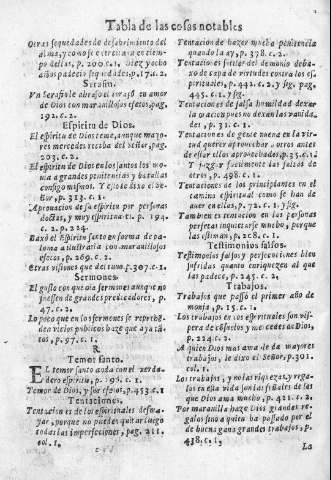 Tabla de las cosas notables
Otras sequedades de desabrimiento del
alma, y conoserse cercania en tiem-
po dellas, p. 200. c. 1. diez y ocho
años padeciò sequedades, p. 17. c. 2.
Serafin.
Vn Serafin le abrasò el coraçõ en amor
de Dios con marauillosos efetos, pag,
192. c. 2.
Espiritu de Dios.
El espiritu de Dios teme, aunque mayo-
res mercedes reciba del Señor, pag.
203. c. 2.
El espiritu de Dios en los santos los mo-
uia a grandes penitencias y batallas
consigo mismos. Y esto le dixo el Se-
ñor, p. 313. c. 1.
Aprouacion de su espiritu por personas
doctas, y muy espirituales p. 194.
c. 2. p. 224.
Baxò el Espiritu santo en forma de pa-
loma a ilustrarla con marauillosos
efetos, p. 269. c. 2.
Otras visiones que del tuuo p. 307. c. 1.
Sermones.
El gusto con que oìa sermones aunque no
fuessen de grandes predicadores, p.
47. c. 2.
Lo poco que en los sermones se reprehẽ-
den vicios publicos haze que aya tã-
tos, p. 97. c. 1.
R
Temor santo.
EL temor santo anda con el verda-
dero espiritu, p. 196. c. 1.
Temor de Dios, y sus efetos, p. 453. c. 1
Tentaciones.
Tentaciones de los espirituales desma-
yar, porque no pueden quitar luego
todas las imperfecciones, pag. 211.
col. 1.
Tentacion de hazer mucha penitencia
quando la ay, p. 378. c. 2.
Tentaciones sutiles del demonio deba-
xo de capa de virtudes contra los es-
pirituales, p. 442. c. 2. y sig. pag,
445. c. 1. y sig.
Tentaciones de falsa humildad dexar
la oracion pues no dexan las vanida-
des, p. 31. c. 1.
Tentaciones de gente nueua en la vir-
tud querer aprouechar a otros antes
de estar ellos aprouechados, p. 35. c. 1.
Y juzgar facilmente las faltas de
otros, p. 498. c. 1.
Tentaciones de los principiantes en el
camino espiritual como se han de
auer en ellas, p. 72. c. 1. y sig.
Tambien es tentacion en las personas
perfetas inquietarse mucho, porque
las estiman, p. 218. c. 1.
Testimonios falsos.
Testimonios falsos y persecuciones bien
sufridas quanto enriquezen al que
las padece, p. 245. c. 2.
Trabajos.
Trabajos que passò el primer año de
monja, p. 15. c. 1.
Los trabajos en los espirituales son vis-
pera de cõsuelos y mercedes de Dios,
p. 224. c. 2.
A quien Dios mas ama le da mayores
trabajos, le dixo el Señor, p. 301.
col. 1.
Los trabajos, y no las riquezas, y rega-
los en esta vida son las señales de los
que Dios ama mucho, p. 421. c. 2.
Por marauilla haze Dios grandes re-
galos sino a quien ha passado por el
de buena gana grandes trabajos, p.
438. c. 1.
La